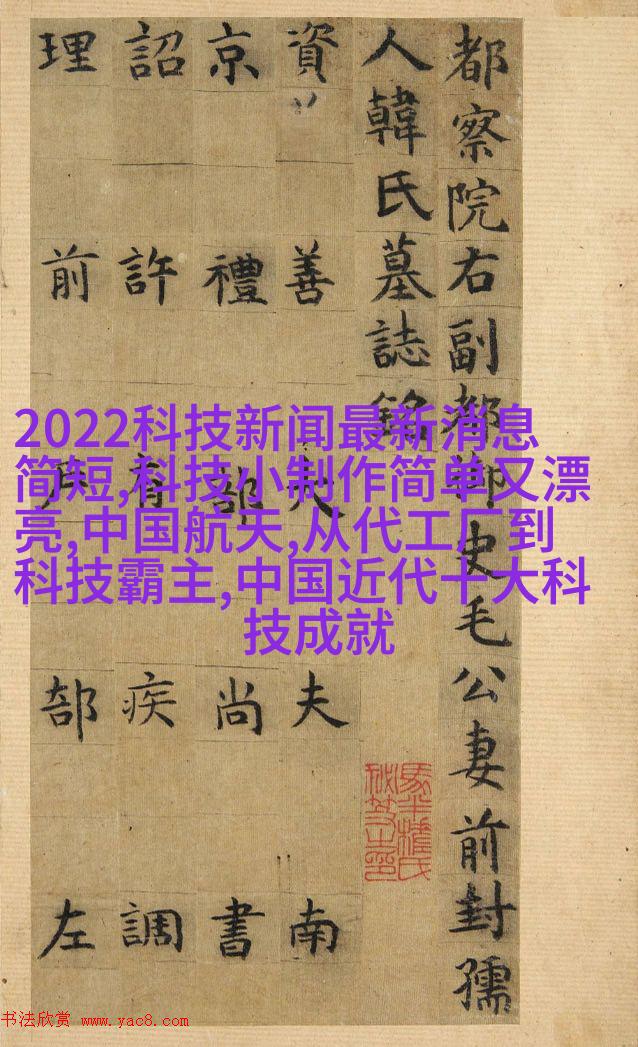 都察院右副都御史毛公妻前封孺
人韓氏墓誌銘
資善大夫南
京禮部尚書
詔許有疾調
理前戶部左
2022科技新闻最新消息
简短,科技小制作简单又漂
亮,中国航天,从代工厂到
科技霸主,中国近代十大科
技成就
书法欣赏 www.yac8.com